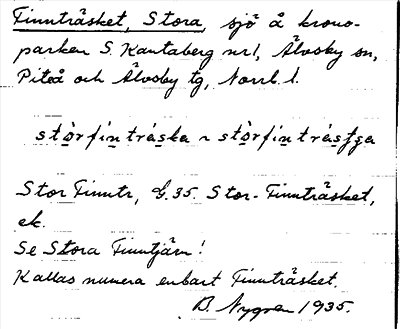 Finnträsket, Stora, sjö å krono-
parken S. Kantaberg nr 1, Älvsby sn,
Piteå och Älvsby tg, Norrl l.
Stor Finntr, G. 35. Stor-Finnträsket,
ek.
Se Stora Finntjärn!
Kallas numera enbart Finnträsket.
B. Nygren 1935.